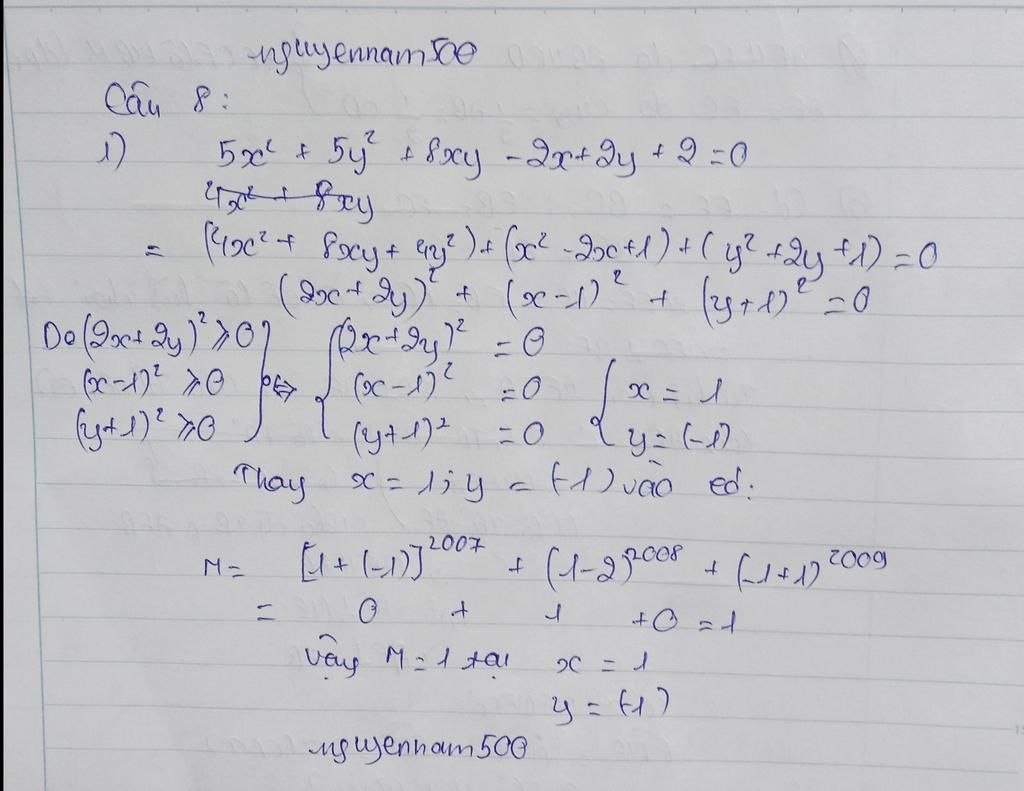 nguyennam500
Câu 8:
1) 5x² + 5y² + 8xy - 2x + 2y + 2 = 0
4x² + 8xy
= (4x² + 8xy + 4y²) + (x² - 2x + 1) + (y² + 2y + 1) = 0
(2x + 2y)² + (x - 1)² + (y + 1)² = 0
Do (2x + 2y)² ≥ 0 } ⇔ { (2x + 2y)² = 0
(x - 1)² ≥ 0 (x - 1)² = 0 { x = 1
(y + 1)² ≥ 0 (y + 1)² = 0 y = (-1)
Thay x = 1; y = (-1) vào có:
M = [1 + (-1)]²⁰⁰⁷ + (1 - 2)²⁰⁰⁸ + (-1 + 1)²⁰⁰⁹
= 0 + 1 + 0 = 1
Vậy M = 1 tại x = 1
y = (-1)
nguyennam500